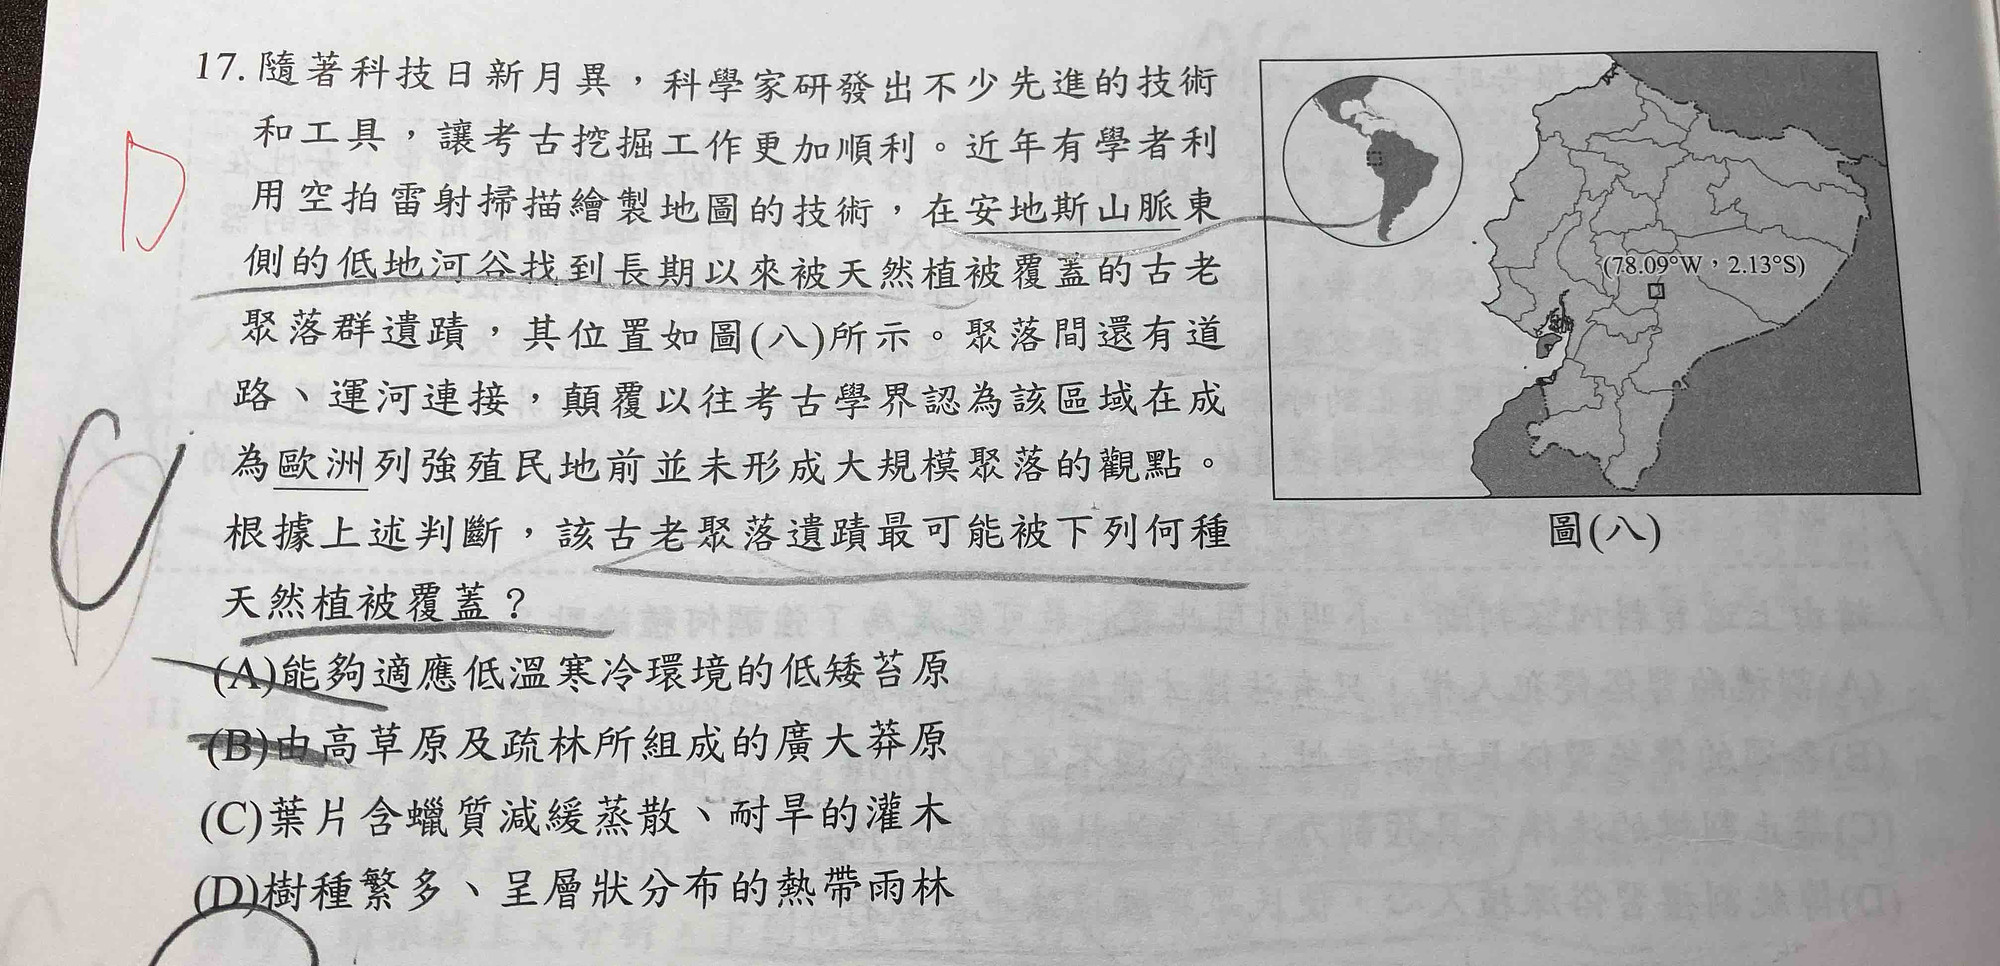 17. 隨著科技日新月異，科學家研發出不少先進的技術
和工具，讓考古挖掘工作更加順利。近年有學者利
用空拍雷射掃描繪製地圖的技術，在安地斯山脈東
側的低地河谷找到長期以來被天然植被覆蓋的古老
聚落群遺蹟，其位置如圖(八)所示。聚落間還有道
路、運河連接，顛覆以往考古學界認為該區域在成
為歐洲列強殖民地前並未形成大規模聚落的觀點。
根據上述判斷，該古老聚落遺蹟最可能被下列何種
天然植被覆蓋？
(A)能夠適應低溫寒冷環境的低矮苔原
(B)由高草原及疏林所組成的廣大莽原
(C)葉片含蠟質減緩蒸散、耐旱的灌木
(D)樹種繁多、呈層狀分布的熱帶雨林
(78.09°W，2.13°S)
圖(八)
D
C